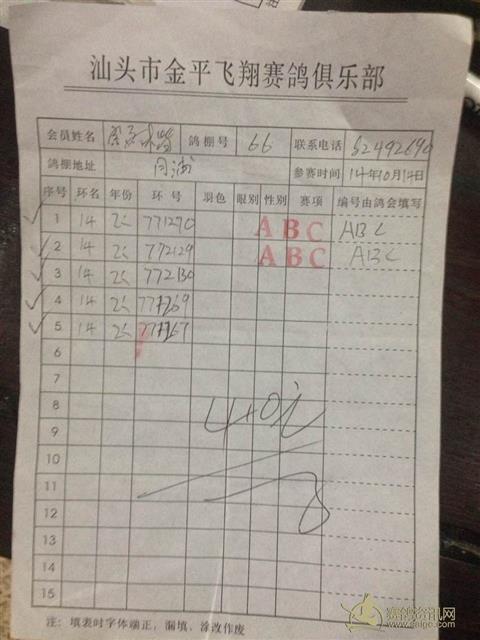 汕头市金平飞翔赛鸽俱乐部
会员姓名 鸽棚号 66 联系电话 82492690
鸽棚地址 参赛时间 14年10月14日
序号 环名 年份 环号 羽色 眼别 性别 赛项 编号由鸽会填写
1 14 771270 A B C ABC
2 14 772129 A B C ABC
3 14 772130
4 14
5 14
6
7
8
9
10
11
12
13
14
15
注:填表时字体端正,漏填、涂改作废
赛鸽资讯网
www.saige.com